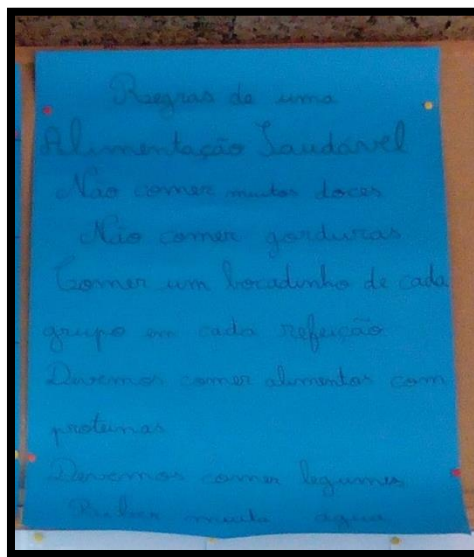 Regras de uma
Alimentação Saudável
Não comer muitos doces
Não comer gorduras
Comer um bocadinho de cada
grupo em cada refeição
Devemos comer alimentos com
proteinas
Devemos comer legumes
Beber muita água